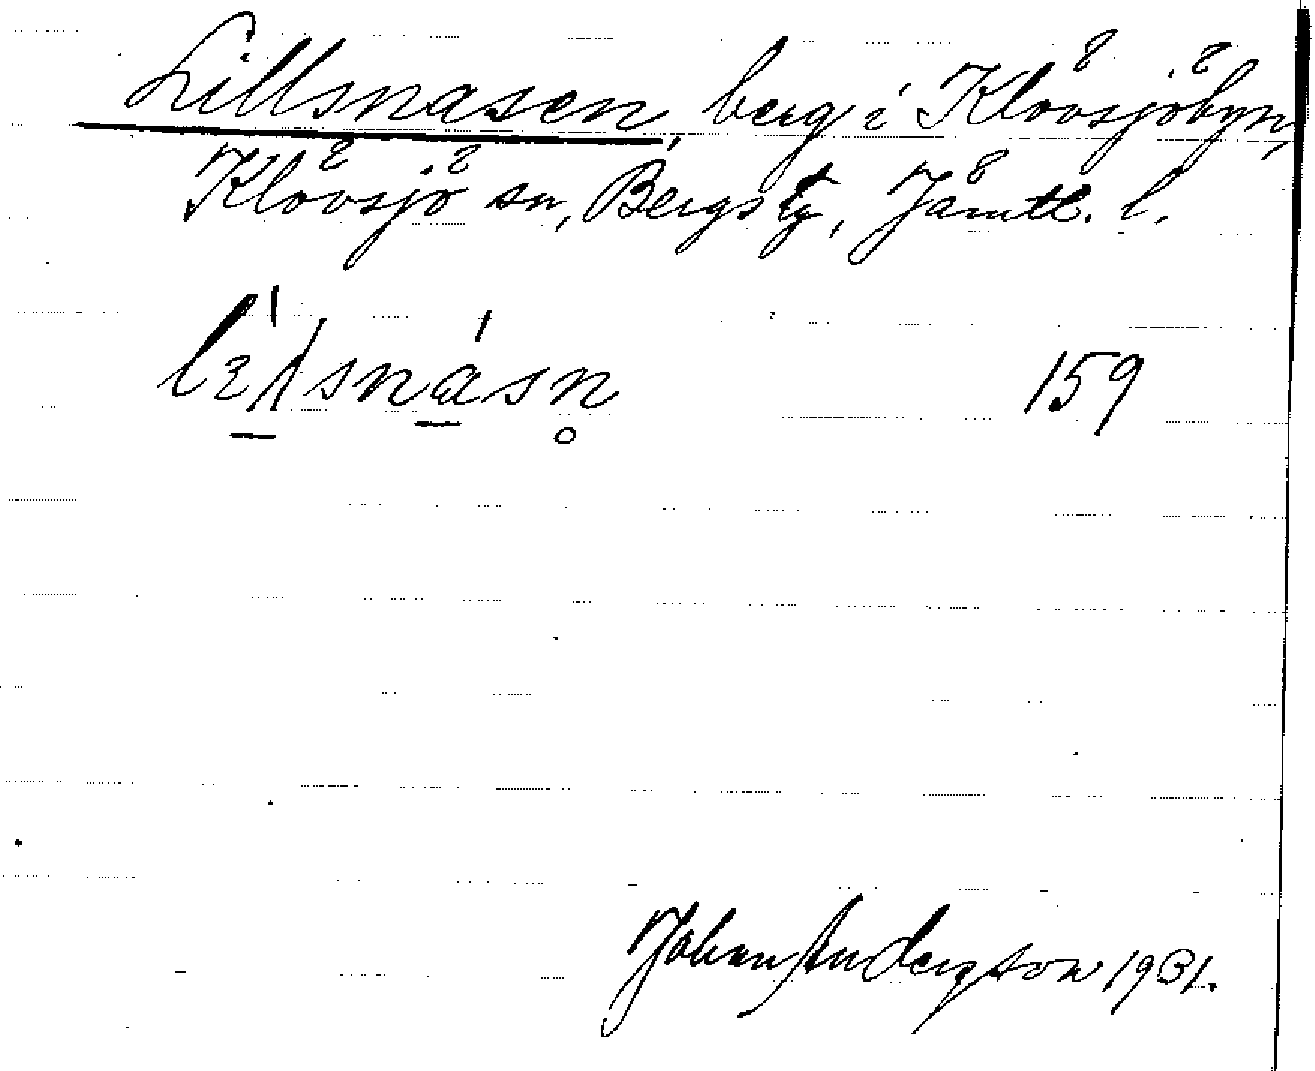 Lillsnasen, berg i Klövsjöbyn,
Klövsjö sn, Bergs tg, Jämtl. l.
159
Johan Anderson 1931.